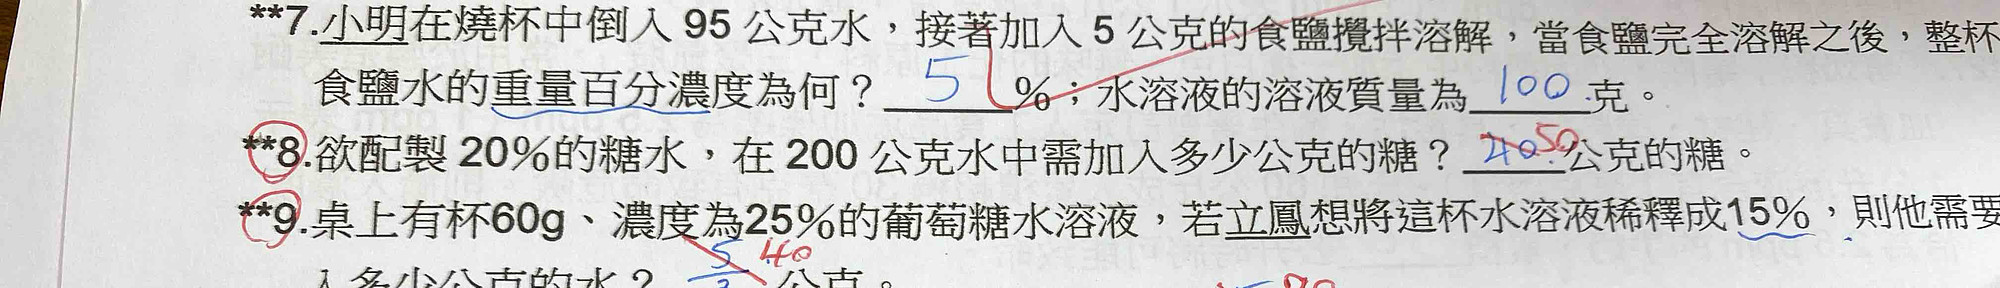 **7.小明在燒杯中倒入 95 公克水，接著加入 5 公克的食鹽攪拌溶解，當食鹽完全溶解之後，整杯
食鹽水的重量百分濃度為何？ 5 %；水溶液的溶液質量為 100 克。
**8.欲配製 20%的糖水，在 200 公克水中需加入多少公克的糖？ 40 50 公克的糖。
**9.桌上有杯60g、濃度為25%的葡萄糖水溶液，若立鳳想將這杯水溶液稀釋成15%，則他需要
入多少公克的水？ 5 40 公克。